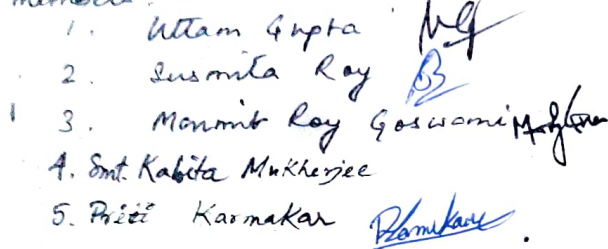 1. Uttam Gupta
2. Susmita Roy
3. Monmit Roy Goswami
4. Smt. Kabita Mukherjee
5. Priti Karmakar PKarmakar